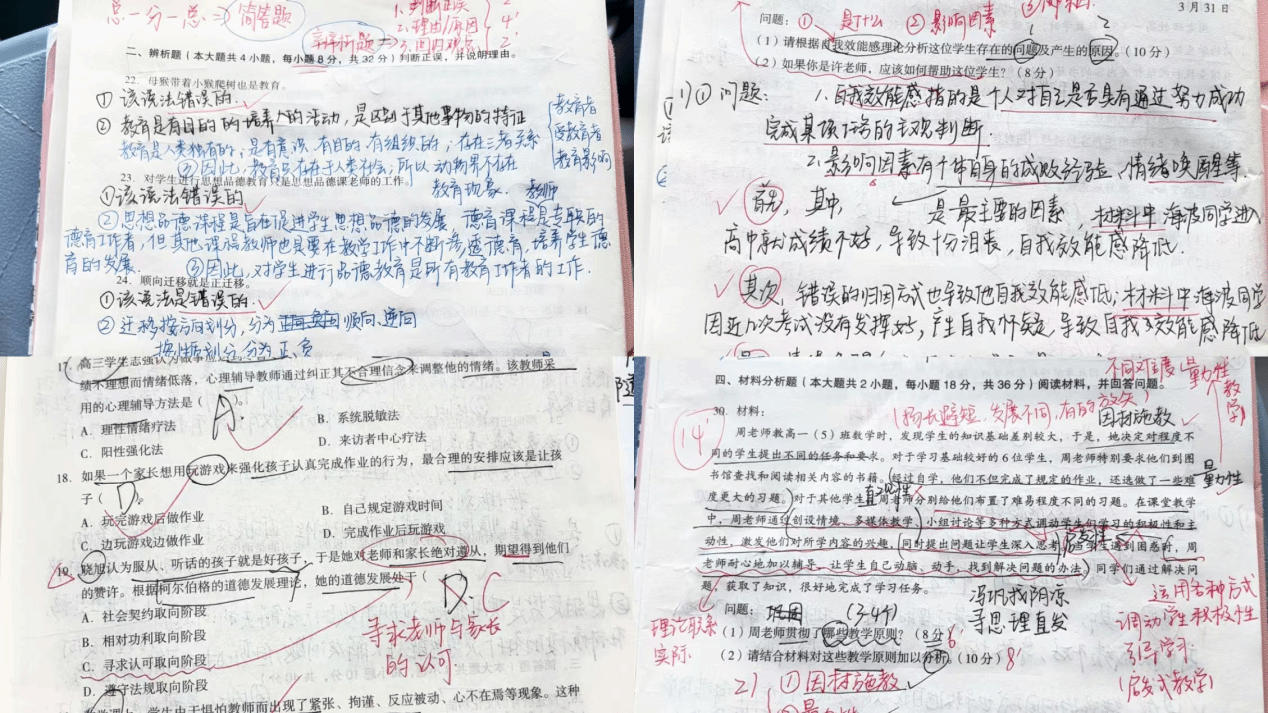 总一分一总 ⇒ 简答题
1. 判断正误 2'
2. 理由/原因 4'
辨析题 ⇒ 3. 回归观点 2'
二、辨析题（本大题共4小题，每小题8分，共32分）判断正误，并说明理由。
22. 母猴带着小猴爬树也是教育。
①该说法错误的.
②教育是有目的的培养人的活动，是区别于其他事物的特征
教育是人类独有的，是有意识、有目的、有组织的，存在三者关系
教育者
受教育者
教育影响
③因此，教育只存在于人类社会，所以动物界不存在
教育现象.
23. 对学生进行思想品德教育只是思想品德课老师的工作。
教师
①该说法错误的
②思想品德课程是旨在促进学生思想品德的发展 德育课程是专职的
德育工作者，但其他课程教师也具要在教学工作中不断渗透德育，培养学生德
育的发展. ③因此，对学生进行品德教育是所有教育工作者的工作.
24. 顺向迁移就是正迁移。
①该说法是错误的.
②迁移按方向划分，分为顺向、逆向
按性质划分，分为正、负
3月31日
问题：① 是什么 ② 影响因素
（1）请根据自我效能感理论分析这位学生存在的问题及产生的原因。（10分）
（2）如果你是许老师，应该如何帮助这位学生？（8分）
1) ① 问题： 1. 自我效能感指的是个人对自己是否具有通过努力成功
完成某项任务的主观判断.
2. 影响因素有个体自身的成败经验、情绪唤醒等.
首先，其中， 是最主要的因素，材料中海波同学进入
高中就成绩不好，导致十分沮丧，自我效能感降低.
其次，错误的归因方式也导致他自我效能感低；材料中海波同学
因近几次考试没有发挥好，产生自我怀疑，导致自我效能感降低
17. 高三学生志强认为
绩不理想而情绪低落，心理辅导教师通过纠正其不合理信念来调整他的情绪。该教师采
用的心理辅导方法是（ ）。
A.
A. 理性情绪疗法 B. 系统脱敏法
C. 阳性强化法 D. 来访者中心疗法
18. 如果一个家长想用玩游戏来强化孩子认真完成作业的行为，最合理的安排应该是让孩
子（ D ）。
A. 玩完游戏后做作业 B. 自己规定游戏时间
C. 边玩游戏边做作业 D. 完成作业后玩游戏
19. 晓旭认为服从、听话的孩子就是好孩子，于是她对老师和家长绝对遵从，期望得到他们
的赞许。根据柯尔伯格的道德发展理论，她的道德发展处于（
D. C
A. 社会契约取向阶段
B. 相对功利取向阶段
C. 寻求认可取向阶段
D. 遵守法规取向阶段
寻求老师与家长
的认可
学生由于惧怕教师而出现了紧张、拘谨、反应被动、心不在焉等现象。这种
不同难度：量力性
教学
四、材料分析题（本大题共2小题，每小题18分，共36分）阅读材料，并回答问题。
30. 材料：
（扬长避短、发展不同、有的放矢） 因材施教
14'
周老师教高一（5）班数学时，发现学生的知识基础差别较大，于是，她决定对程度不
同的学生提出不同的任务和要求。对于学习基础较好的6位学生，周老师特别要求他们到图
书馆查找和阅读相关内容的书籍。经过自学，他们不但完成了规定的作业，还选做了一些难
量力性
度更大的习题。对于其他学生，周老师分别给他们布置了难易程度不同的习题。在课堂教学
直观性
中，周老师通过创设情境、多媒体教学、小组讨论等多种方式调动学生们学习的积极性和主
动性，激发他们对所学内容的兴趣，同时提出问题让学生深入思考。当学生遇到困惑时，周
启发性
老师耐心地加以辅导，让学生自己动脑、动手，找到解决问题的办法。同学们通过解决问
题，获取了知识，很好地完成了学习任务。
理论联系
实际
问题： （3-4个）
冯巩找阴凉
寻思理直发
（1）周老师贯彻了哪些教学原则？（8分） 6'
（2）请结合材料对这些教学原则加以分析。（10分） 8'
运用各种方式
调动学生积极性
引导学习
（启发式教学）
2） ① 因材施教